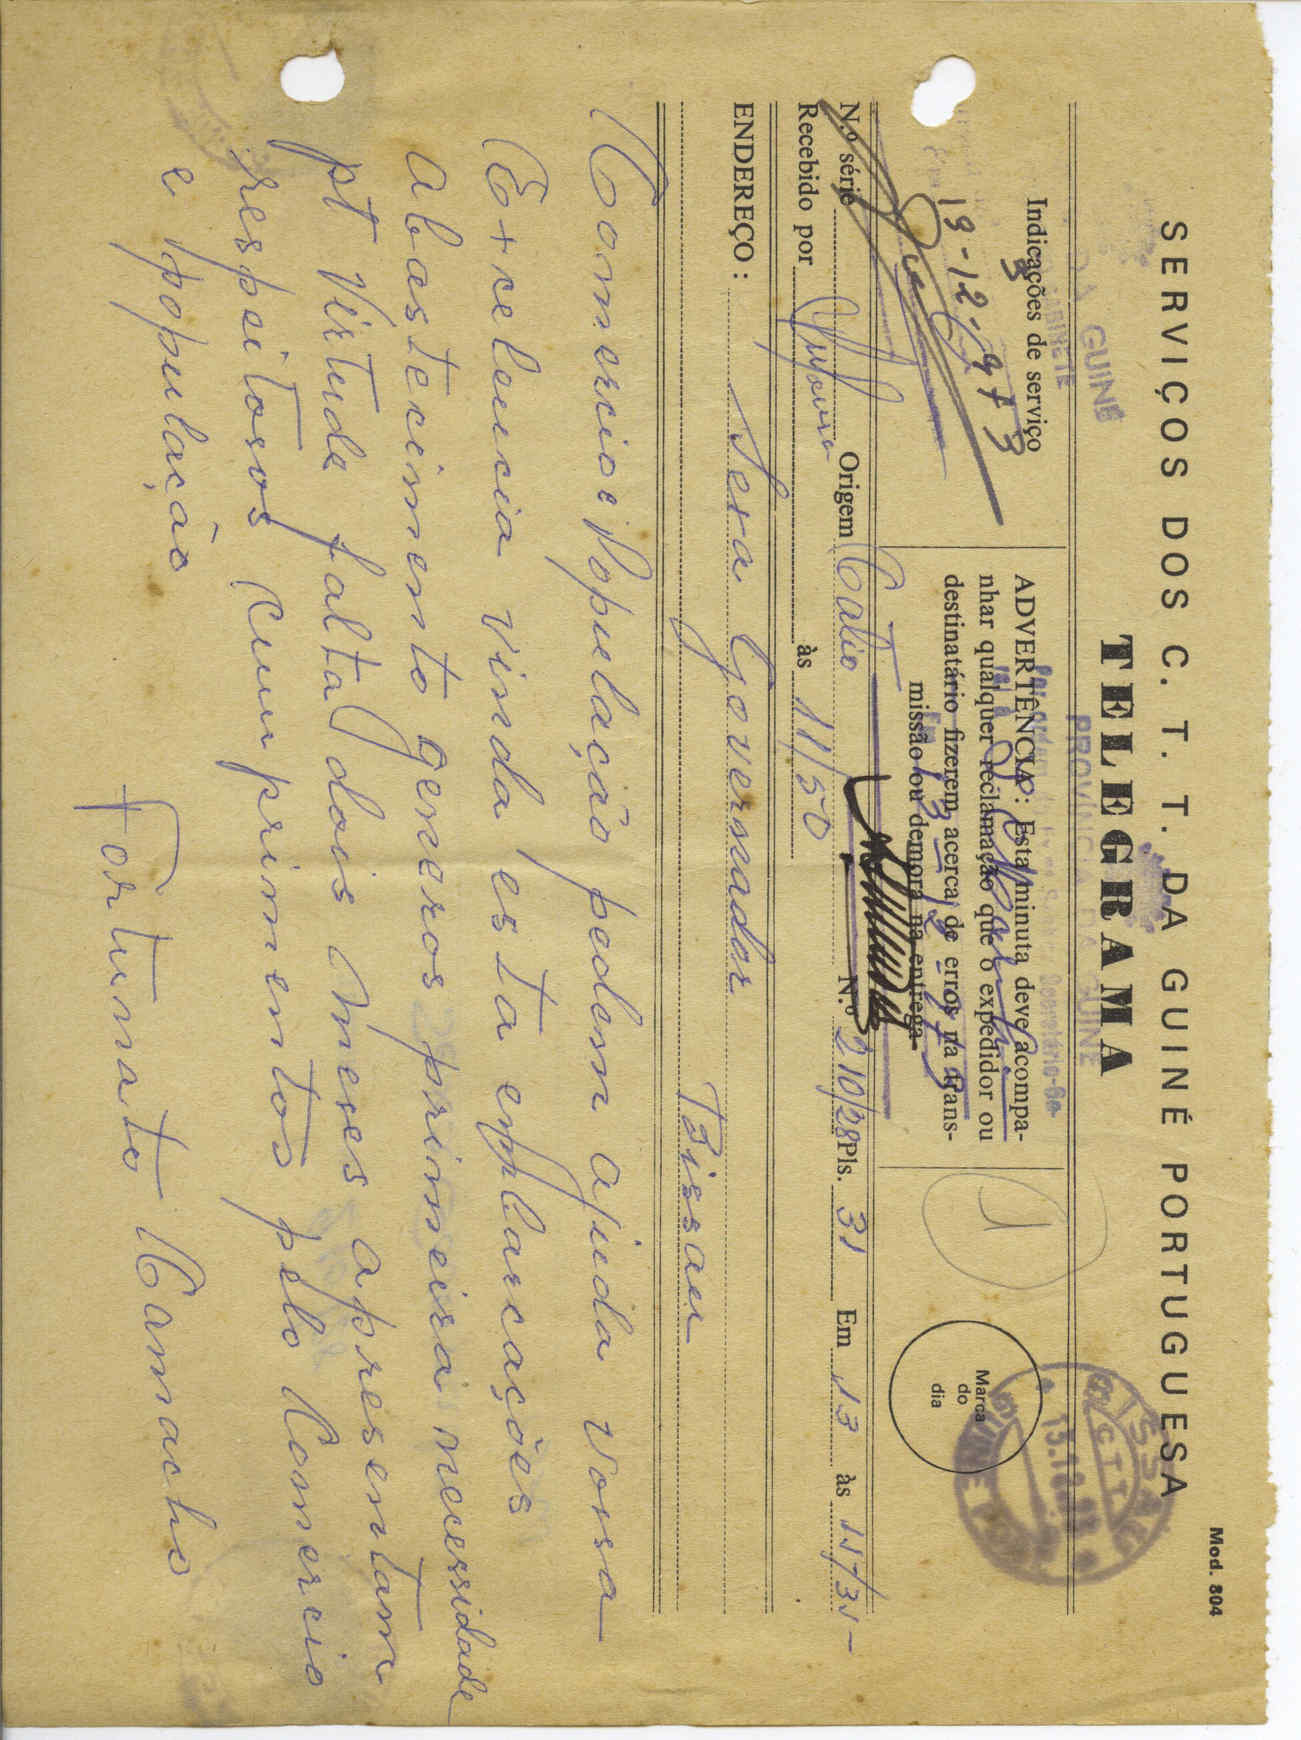 Mod. 804
SERVIÇOS DOS C. T. T. DA GUINÉ PORTUGUESA
TELEGRAMA
Indicações de serviço
13-12-973
ADVERTÊNCIA: Esta minuta deve acompa-
nhar qualquer reclamação que o expedidor ou
destinatário fizerem acerca de erros na trans-
missão ou demora na entrega
Marca
do
dia
N.º série Origem Catio N.º 210/28 Pls. 31 Em 13 às 11/31
Recebido por às 11/50
ENDEREÇO: Sexa Governador
Bissau
Comercio e População pedem ajuda vossa
Excelencia vinda esta emparcações
abastecimento generos primeira necessidade
pt virtude falta dois meses apresentam
respeitosos cumprimentos pelo Comercio
e população
Fortunato Camacho
PROVINCIA DA GUINÉ
GABINETE
BISSAU
CTT